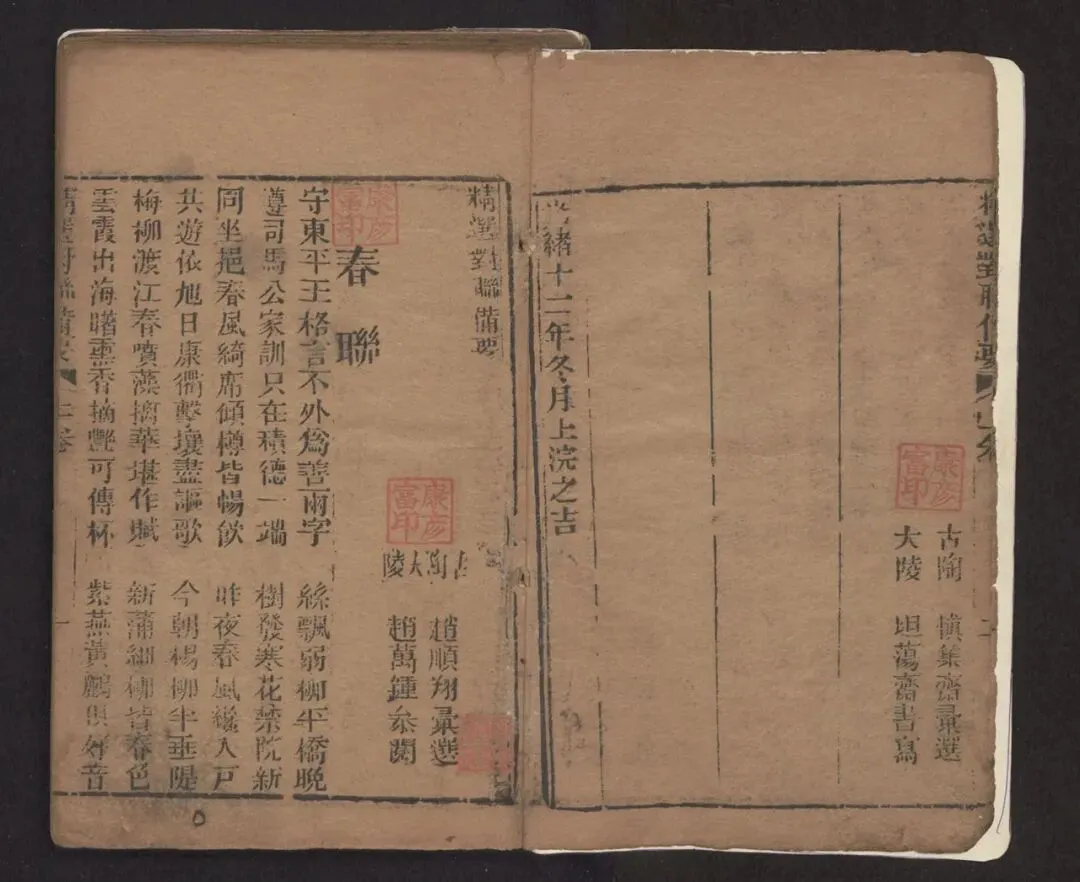 古陶 慎集齋彙選
大陵 坦蕩齋書寫
康彦富印
緒十二年冬月上浣之吉
精選對聯備要
古陶 趙順翔彙選
大陵 趙萬鍾叅閱
康彦富印
春聯
康彦富印
守東平王格言不外為善兩字 絲飄弱柳平橋晚
遵司馬公家訓只在積德一端 樹發寒花禁院新
同坐挹春風綺席傾樽皆暢飲 昨夜春風纔入戶
共遊依旭日康衢擊壤盡謳歌 今朝楊柳半垂隄
梅柳渡江春噴藻摛華堪作賦 新蒲細柳皆春色
雲霞出海曙熏香摘艷可傳杯 紫燕黃鸝俱好音